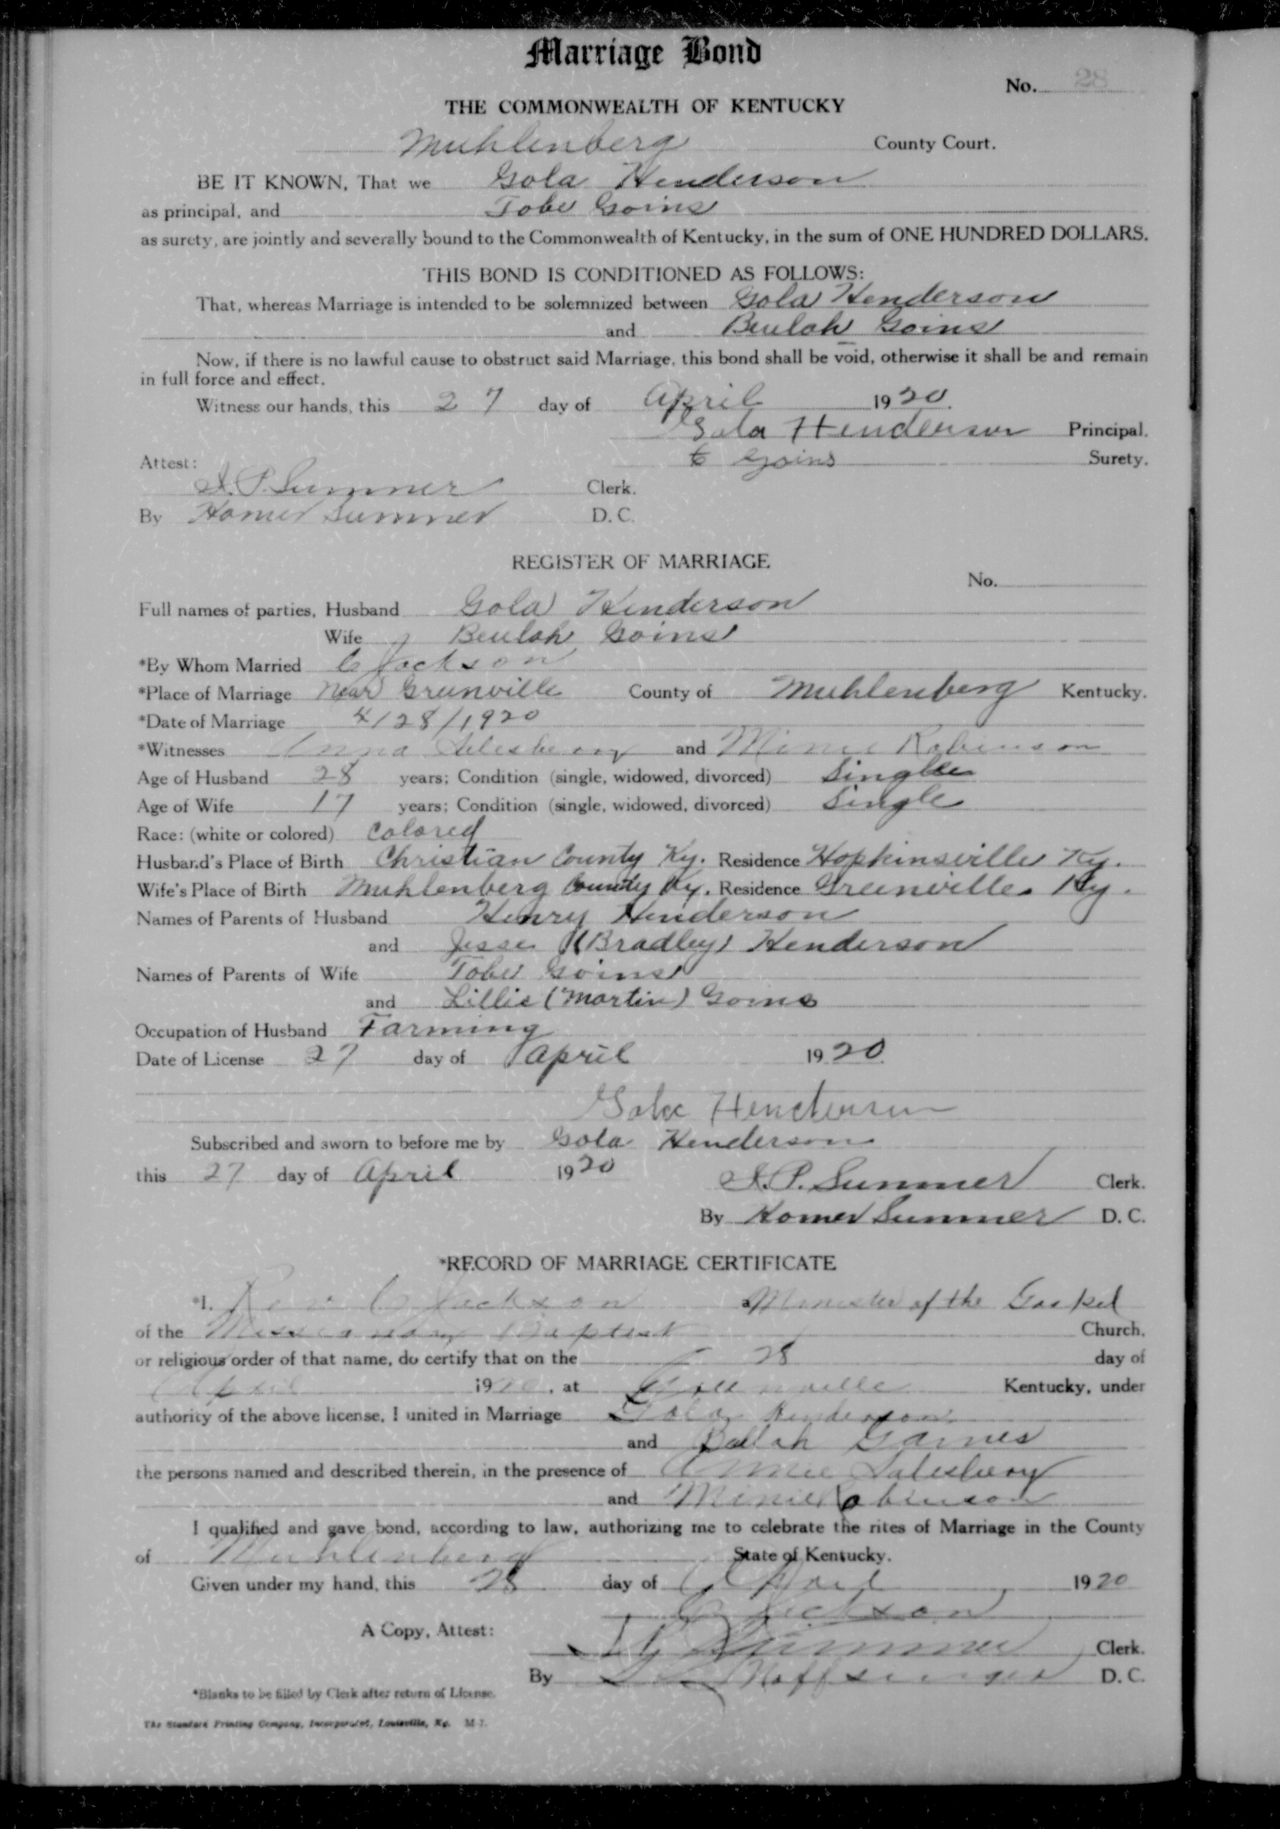 Marriage Bond
No. 28
THE COMMONWEALTH OF KENTUCKY
Muhlenberg County Court.
BE IT KNOWN, That we Gola Henderson
as principal, and Tobe Goins
as surety, are jointly and severally bound to the Commonwealth of Kentucky, in the sum of ONE HUNDRED DOLLARS.
THIS BOND IS CONDITIONED AS FOLLOWS:
That, whereas Marriage is intended to be solemnized between Gola Henderson
and Beulah Goins
Now, if there is no lawful cause to obstruct said Marriage, this bond shall be void, otherwise it shall be and remain
in full force and effect.
Witness our hands, this 27 day of April 1920.
Gola Henderson Principal.
Attest: t Goins Surety.
I. P. Summer Clerk.
By Homer Summer D. C.
REGISTER OF MARRIAGE
No.
Full names of parties, Husband Gola Henderson
Wife Beulah Goins
*By Whom Married C Jackson
*Place of Marriage Near Greenville County of Muhlenberg Kentucky.
*Date of Marriage 4/28/1920
*Witnesses Anna and Minie Robinson
Age of Husband 28 years; Condition (single, widowed, divorced) Single
Age of Wife 17 years; Condition (single, widowed, divorced) Single
Race: (white or colored) Colored
Husband's Place of Birth Christian County Ky. Residence Hopkinsville Ky.
Wife's Place of Birth Muhlenberg County Ky. Residence Greenville Ky.
Names of Parents of Husband Henry Henderson
and Jesse (Bradley) Henderson
Names of Parents of Wife Tobe Goins
and Lillie (Martin) Goins
Occupation of Husband Farming
Date of License 27 day of April 1920.
Gola Henderson
Subscribed and sworn to before me by Gola Henderson
this 27 day of April 1920
I. P. Summer Clerk.
By Homer Summer D. C.
*RECORD OF MARRIAGE CERTIFICATE
*I, Rev C Jackson a Minister of the Gospel
of the Missionary Baptist Church,
or religious order of that name, do certify that on the 28 day of
April 1920, at Greenville Kentucky, under
authority of the above license, I united in Marriage Gola Henderson
and Bulah Gaines
the persons named and described therein, in the presence of Annie Salesbery
and Minie Robinson
I qualified and gave bond, according to law, authorizing me to celebrate the rites of Marriage in the County
of Muhlenberg State of Kentucky.
Given under my hand, this 28 day of April 1920
C Jackson
A Copy, Attest: Summer Clerk.
By Noffsinger D. C.
*Blanks to be filled by Clerk after return of License.
The Standard Printing Company, Incorporated, Louisville, Ky. M-7.